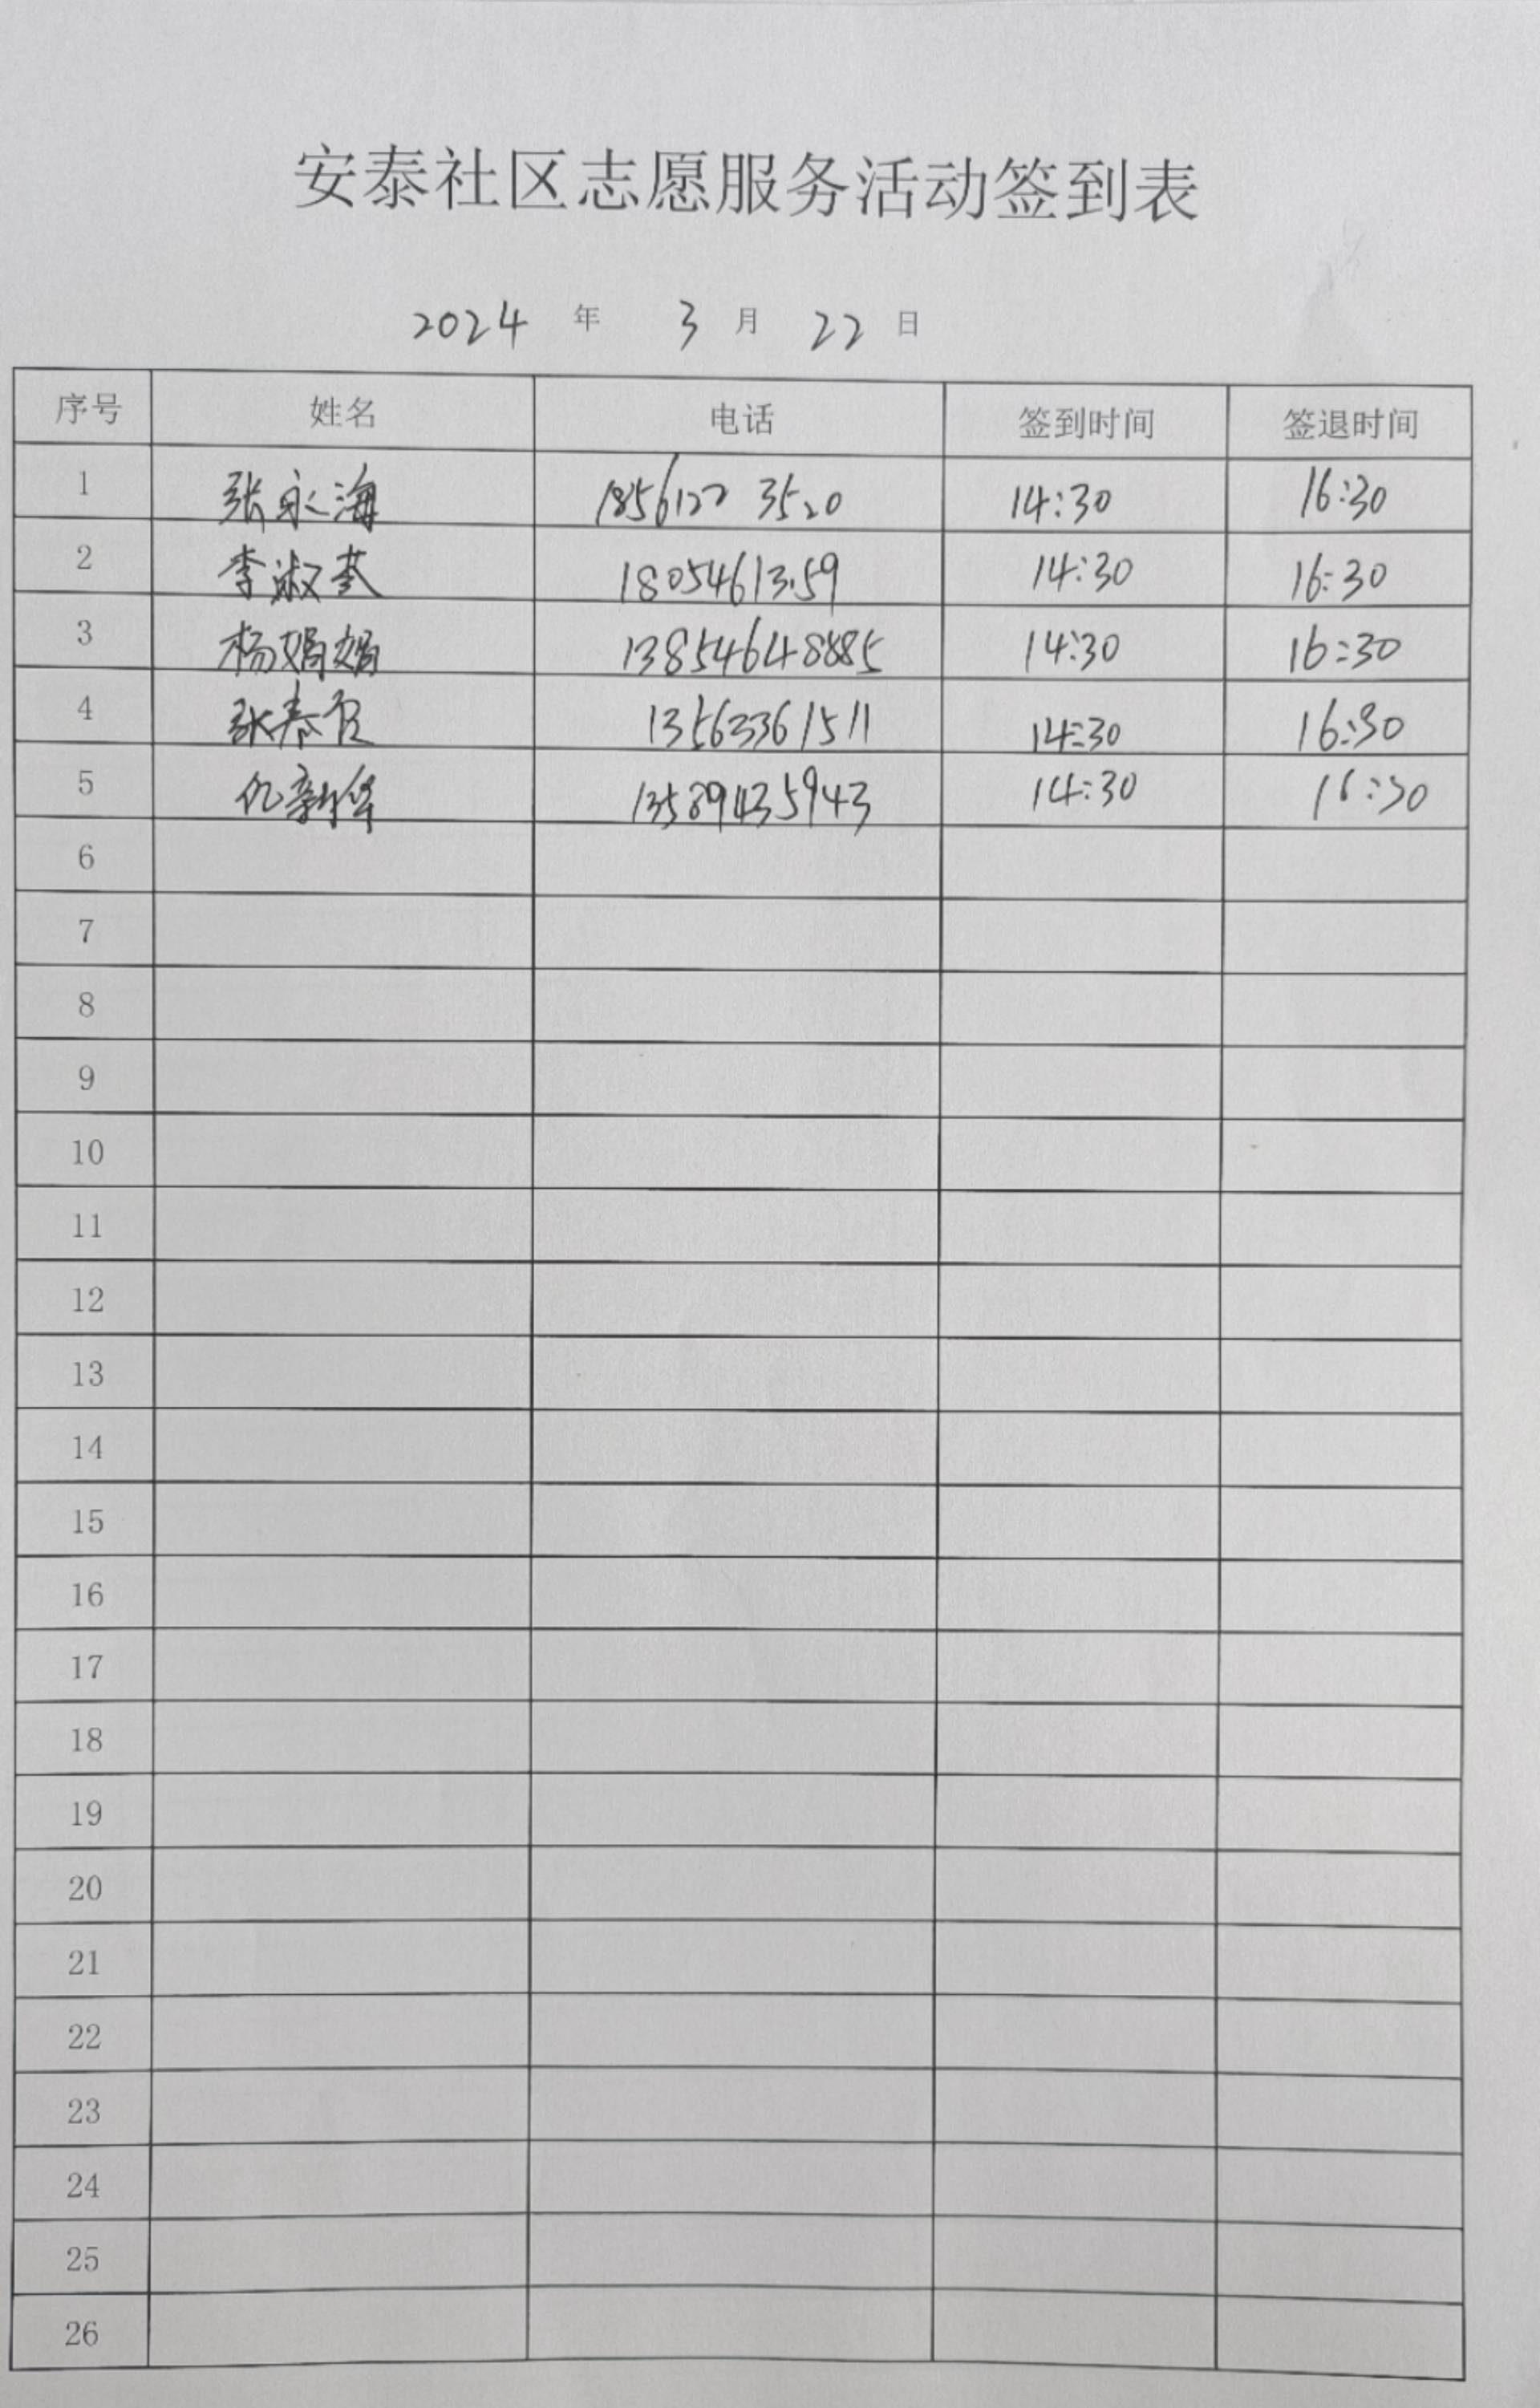 安泰社区志愿服务活动签到表
2024 年 3 月 22 日
序号 姓名 电话 签到时间 签退时间
1 张永海 18561223520 14:30 16:30
2 李淑 14:30 16:30
3 杨娟娟 13854648885 14:30 16:30
4 张春 13563361511 14:30 16:30
5 新华 13589435943 14:30 16:30
6
7
8
9
10
11
12
13
14
15
16
17
18
19
20
21
22
23
24
25
26